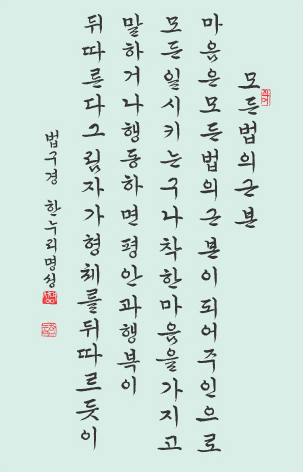 모든법의근본
마음은모든법의근본이되어주인으로
모든일시키는구나착한마음을가지고
말하거나행동하면평안과행복이
뒤따른다그림자가형체를뒤따르듯이
법구경 한누리명성